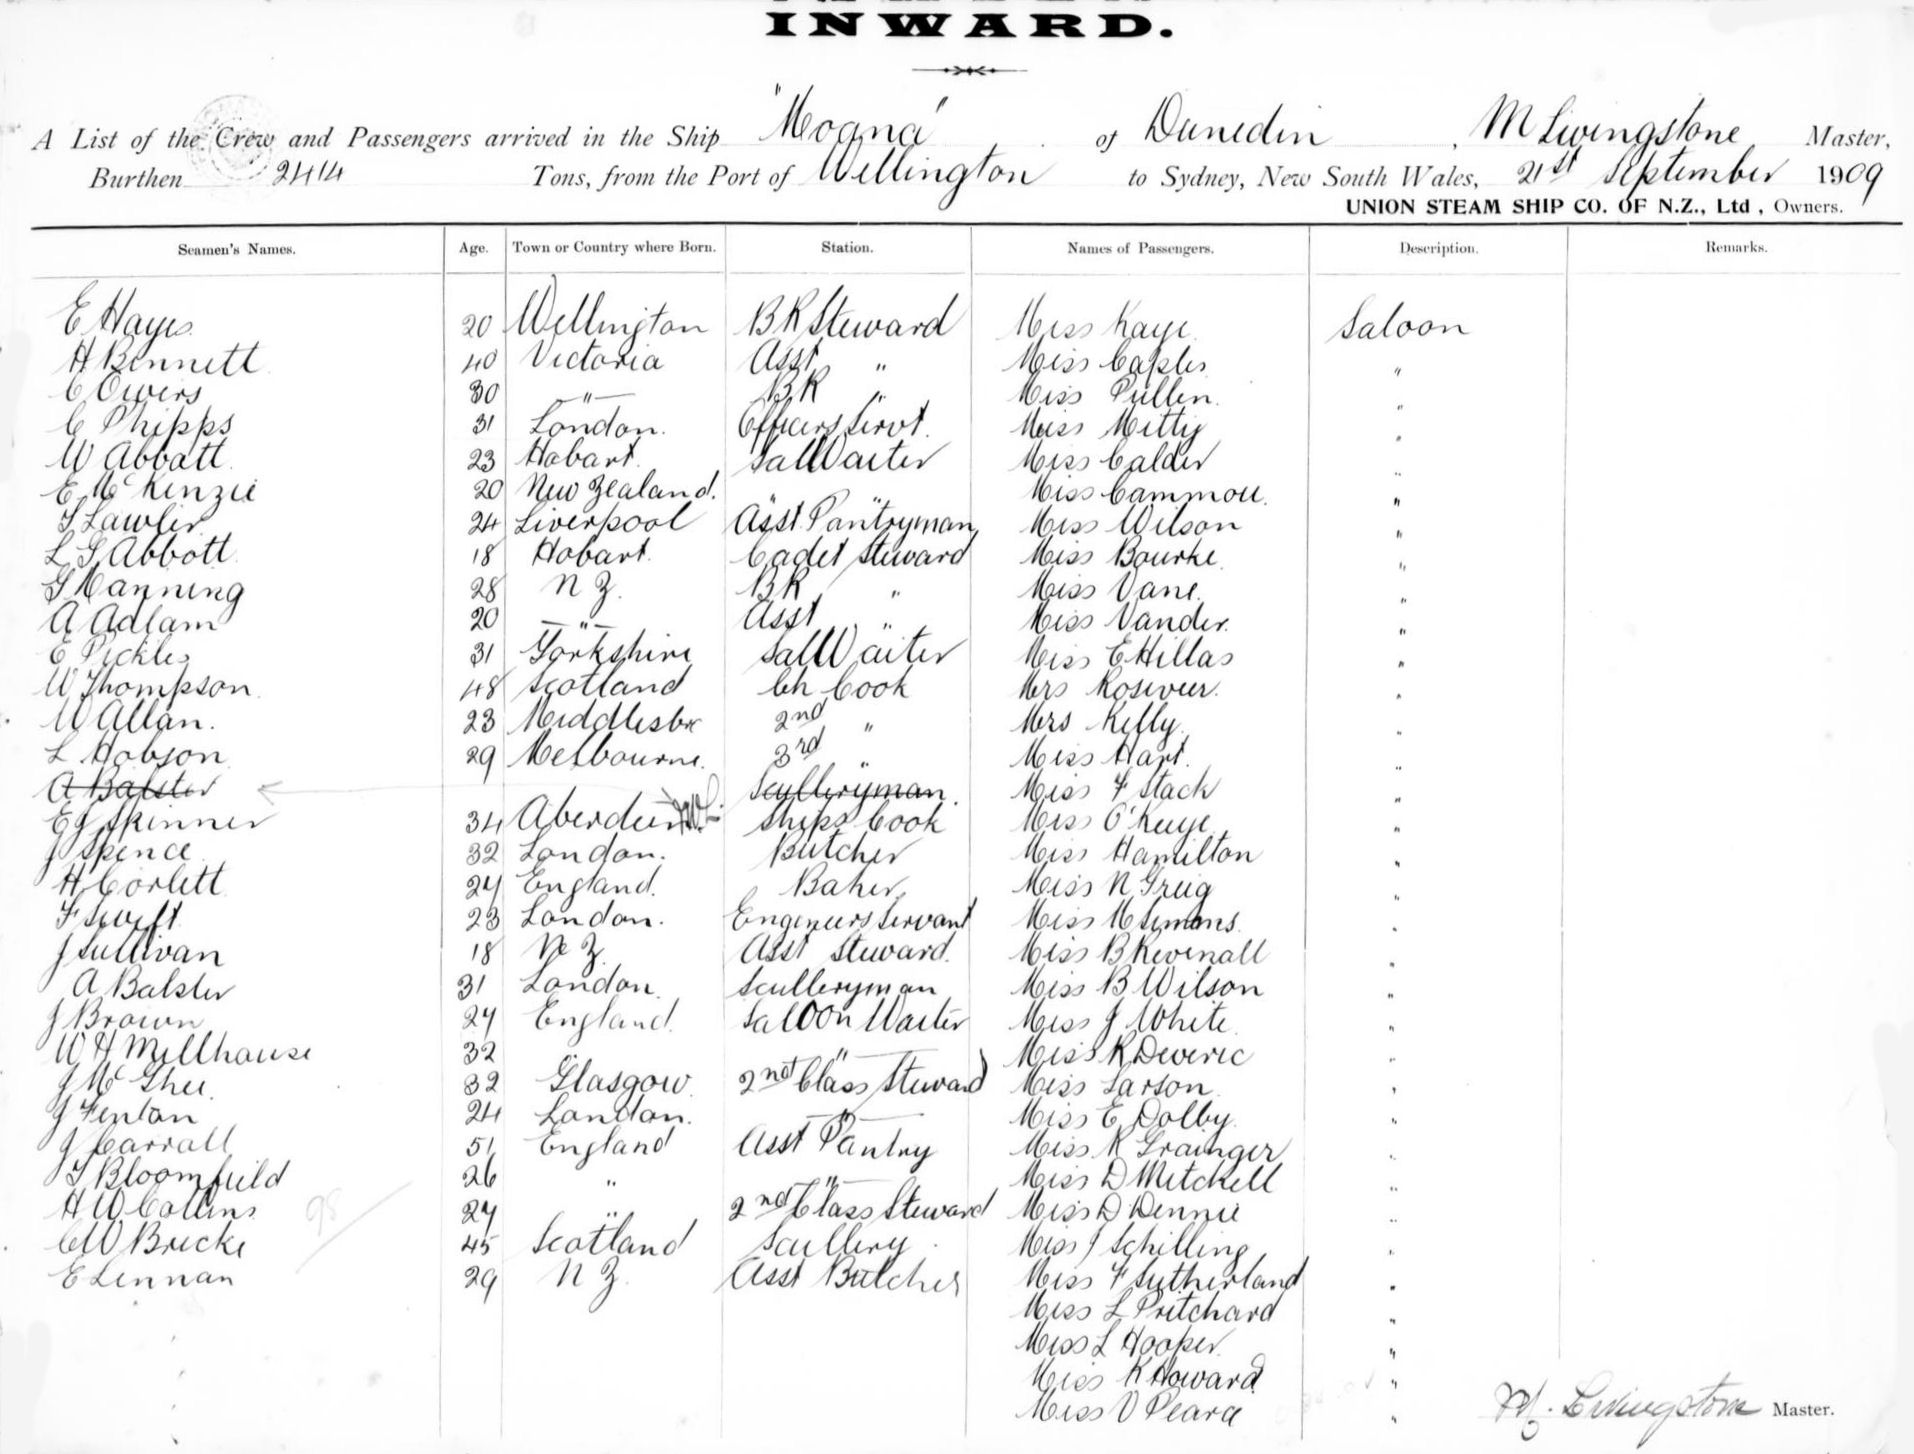 INWARD.
A List of the Crew and Passengers arrived in the Ship "Moana" of Dunedin, M Livingstone Master,
Burthen 2414 Tons, from the Port of Wellington to Sydney, New South Wales, 21st September 1909
UNION STEAM SHIP CO. OF N.Z., Ltd, Owners.
Seamen's Names. Age. Town or Country where Born. Station. Names of Passengers. Description. Remarks.
E Hayes 20 Wellington BR Steward Miss Kaye Saloon
H Bennett 40 Victoria Asst " Miss Caples "
C Owers 30 " BR " Miss Pullen "
C Phipps 31 London. Officers Servt. Miss Mitty "
W Abbott 23 Hobart Sal Waiter Miss Calder "
E McKenzie 20 New Zealand. " " Miss "
T Lawler 24 Liverpool Asst Pantryman Miss Wilson "
L G Abbott 18 Hobart. Cadet Steward Miss Bourke "
G Manning 28 N Z. BR " Miss Vane "
A Adlam 20 " Asst " Miss Vander. "
E Pickles 31 Yorkshire Sal Waiter Miss E Hillas "
W Thompson 48 Scotland Ch Cook Mrs "
W Allan. 23 Middlesbro 2nd " Mrs Kelly "
L Hobson 29 Melbourne. 3rd " Miss Hart. "
A Balster Sculleryman. Miss F Stack "
E J Skinner 34 Aberdeen Ships Cook Miss O'Keefe "
J Spence 32 London. Butcher Miss Hamilton "
H Corlett 24 England. Baker Miss N Greig "
F Swift 23 London. Engineers Servant Miss M Simmons "
J Sullivan 18 N Z. Asst Steward. Miss B "
A Balster 31 London. Sculleryman Miss B Wilson "
J Brown 24 England. Saloon Waiter Miss J White "
W H Millhouse 32 " Miss R "
J McGhee 32 Glasgow. 2nd Class Steward Miss Larson "
J Fenton 24 London. " Miss E Dolby "
J Carroll 51 England Asst Pantry Miss K Grainger "
T Bloomfield 26 " " Miss D Mitchell "
H W Collins 24 " 2nd Class Steward Miss D Dennie "
C W Bricke 45 Scotland Scullery Miss J Schilling "
E Lennan 29 N Z. Asst Butcher Miss F Sutherland "
Miss L Pritchard "
Miss L Hooper "
Miss K Howard "
Miss V "
M. Livingstone Master.